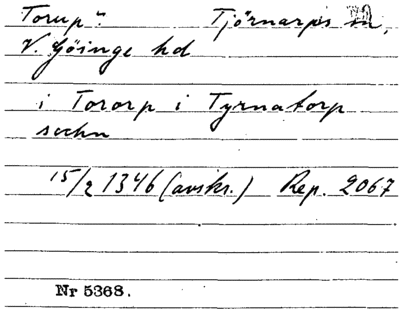 Torup: Tjörnarps sn,
V. Göinge hd
i Tororp i Tyrnatorp
sochn
15/2 1346 (avskr.) Rep. 2067
Nr 5368.